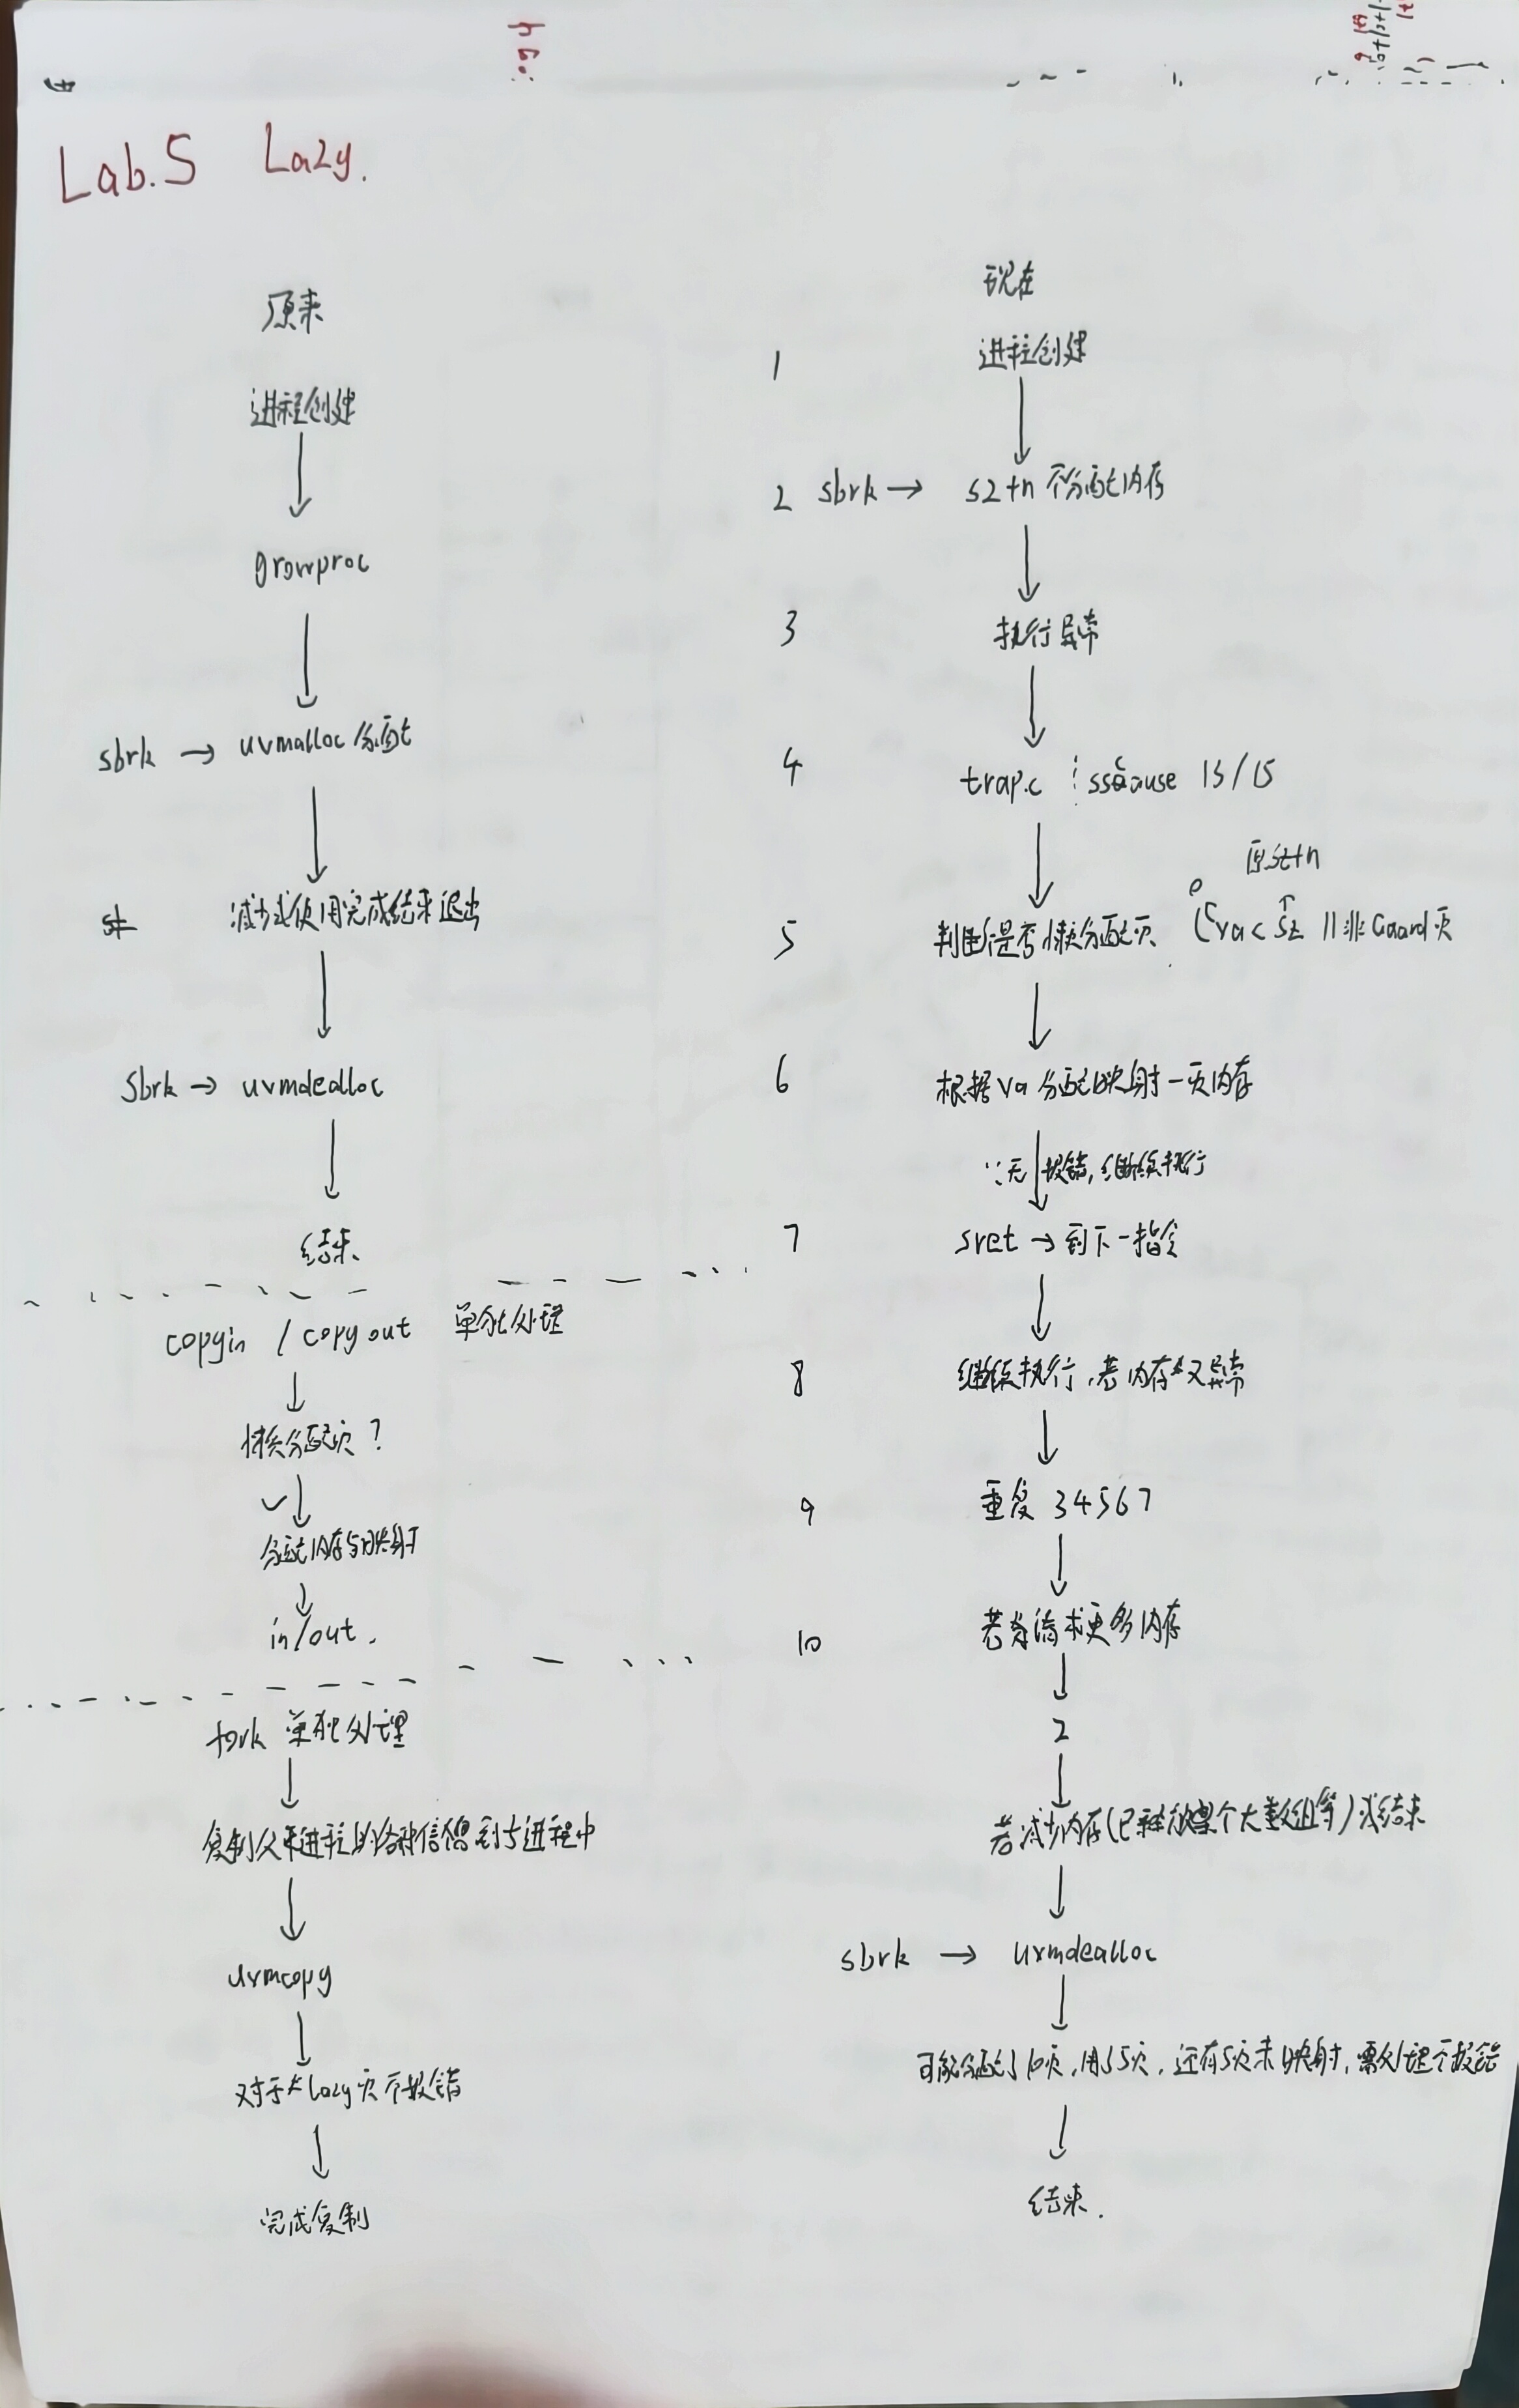 Lab.5 Lazy.
原来
进程创建
growproc
sbrk → uvmalloc 分配
减少或使用完成结束退出
sbrk → uvmdealloc
结束
copyin / copyout 单独处理
懒分配页?
✓
分配内存与映射
in/out.
fork 单独处理
复制父进程的各种信息到子进程中
uvmcopy
对于 lazy 页不报错
完成复制
现在
1 进程创建
2 sbrk → sz+n 不分配内存
3 执行异常
4 trap.c scause 13/15
原sz+n
5 判断是否懒分配页. (va < sz || 非Guard页
6 根据va分配映射一页内存
∵无报错,继续执行
7 sret → 到下一指令
8 继续执行,若内存又异常
9 重复 34567
10 若请求更多内存
2
若减少内存(已释放某个大数组等)或结束
sbrk → uvmdealloc
可能分配了10页,用了5页,还有5页未映射,需处理不报错
结束.